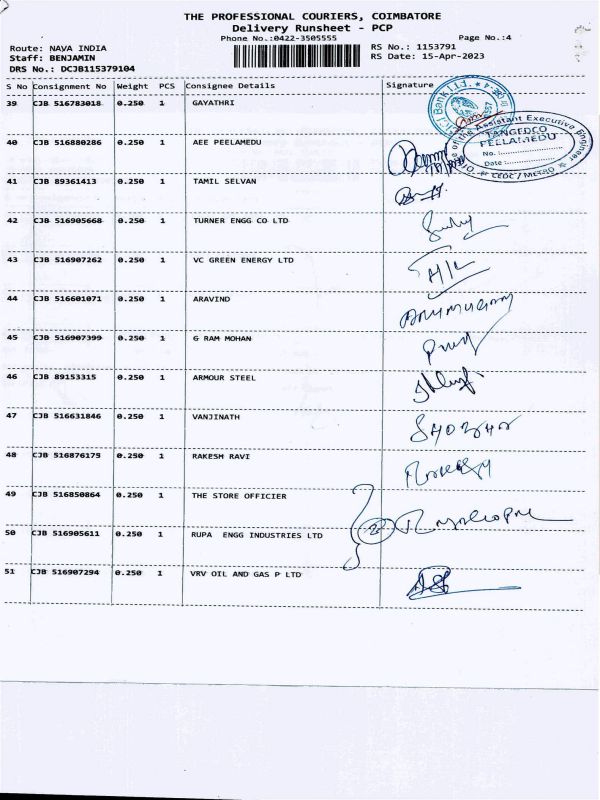 THE PROFESSIONAL COURIERS, COIMBATORE
Delivery Runsheet - PCP
Phone No.:0422-3505555 Page No.:4
Route: NAVA INDIA RS No.: 1153791
Staff: BENJAMIN RS Date: 15-Apr-2023
DRS No.: DCJB115379104
S No Consignment No Weight PCS Consignee Details Signature
39 CJB 516783018 0.250 1 GAYATHRI
40 CJB 516880286 0.250 1 AEE PEELAMEDU
41 CJB 89361413 0.250 1 TAMIL SELVAN
42 CJB 516905668 0.250 1 TURNER ENGG CO LTD
43 CJB 516907262 0.250 1 VC GREEN ENERGY LTD
44 CJB 516601071 0.250 1 ARAVIND
45 CJB 516907399 0.250 1 G RAM MOHAN
46 CJB 89153315 0.250 1 ARMOUR STEEL
47 CJB 516631846 0.250 1 VANJINATH
48 CJB 516876175 0.250 1 RAKESH RAVI
49 CJB 516850864 0.250 1 THE STORE OFFICIER
50 CJB 516905611 0.250 1 RUPA ENGG INDUSTRIES LTD
51 CJB 516907294 0.250 1 VRV OIL AND GAS P LTD
Assistant Executive Engineer
TANGEDCO
PEELAMEDU
No.:
Date:
CEDC / METRO